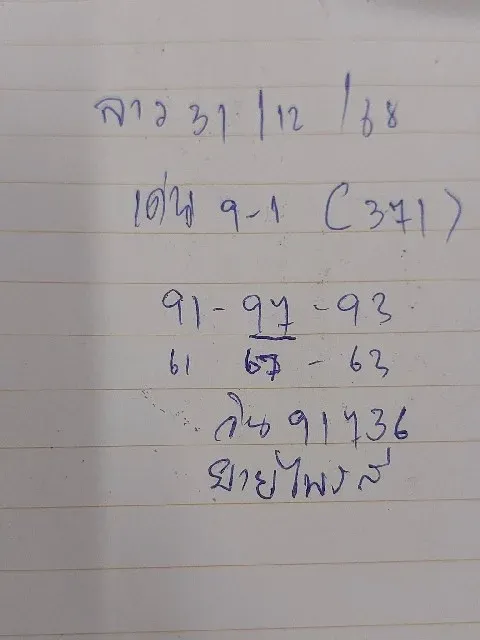 ลาว 31/12/68
เด่น 9-1 (371)
91-97-93
61 67-63
วิน 91736
ยายไพรสี